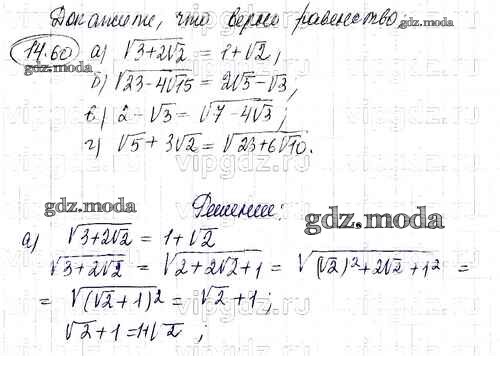 Докажите, что верно равенство.
14.60 а) √(3+2√2) = 1+√2;
gdz.moda
б) √(23-4√15) = 2√5-√3;
в) 2-√3 = √(7-4√3);
г) √5+3√2 = √(23+6√10).
gdz.moda Решение: gdz.moda
а) √(3+2√2) = 1+√2
√(3+2√2) = √(2+2√2+1) = √((√2)²+2√2+1²) =
= √((√2+1)²) = √2+1;
√2+1=1+√2;